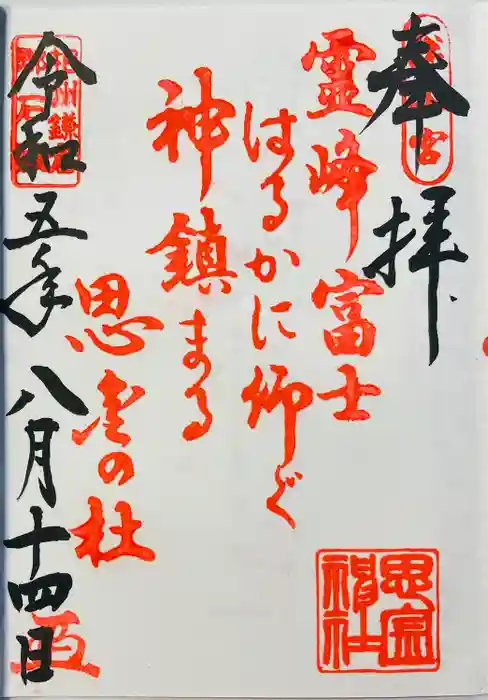 奉拝
霊峰富士
はるかに仰ぐ
神鎮まる
思金の杜
令和五年八月十四日
思金神社